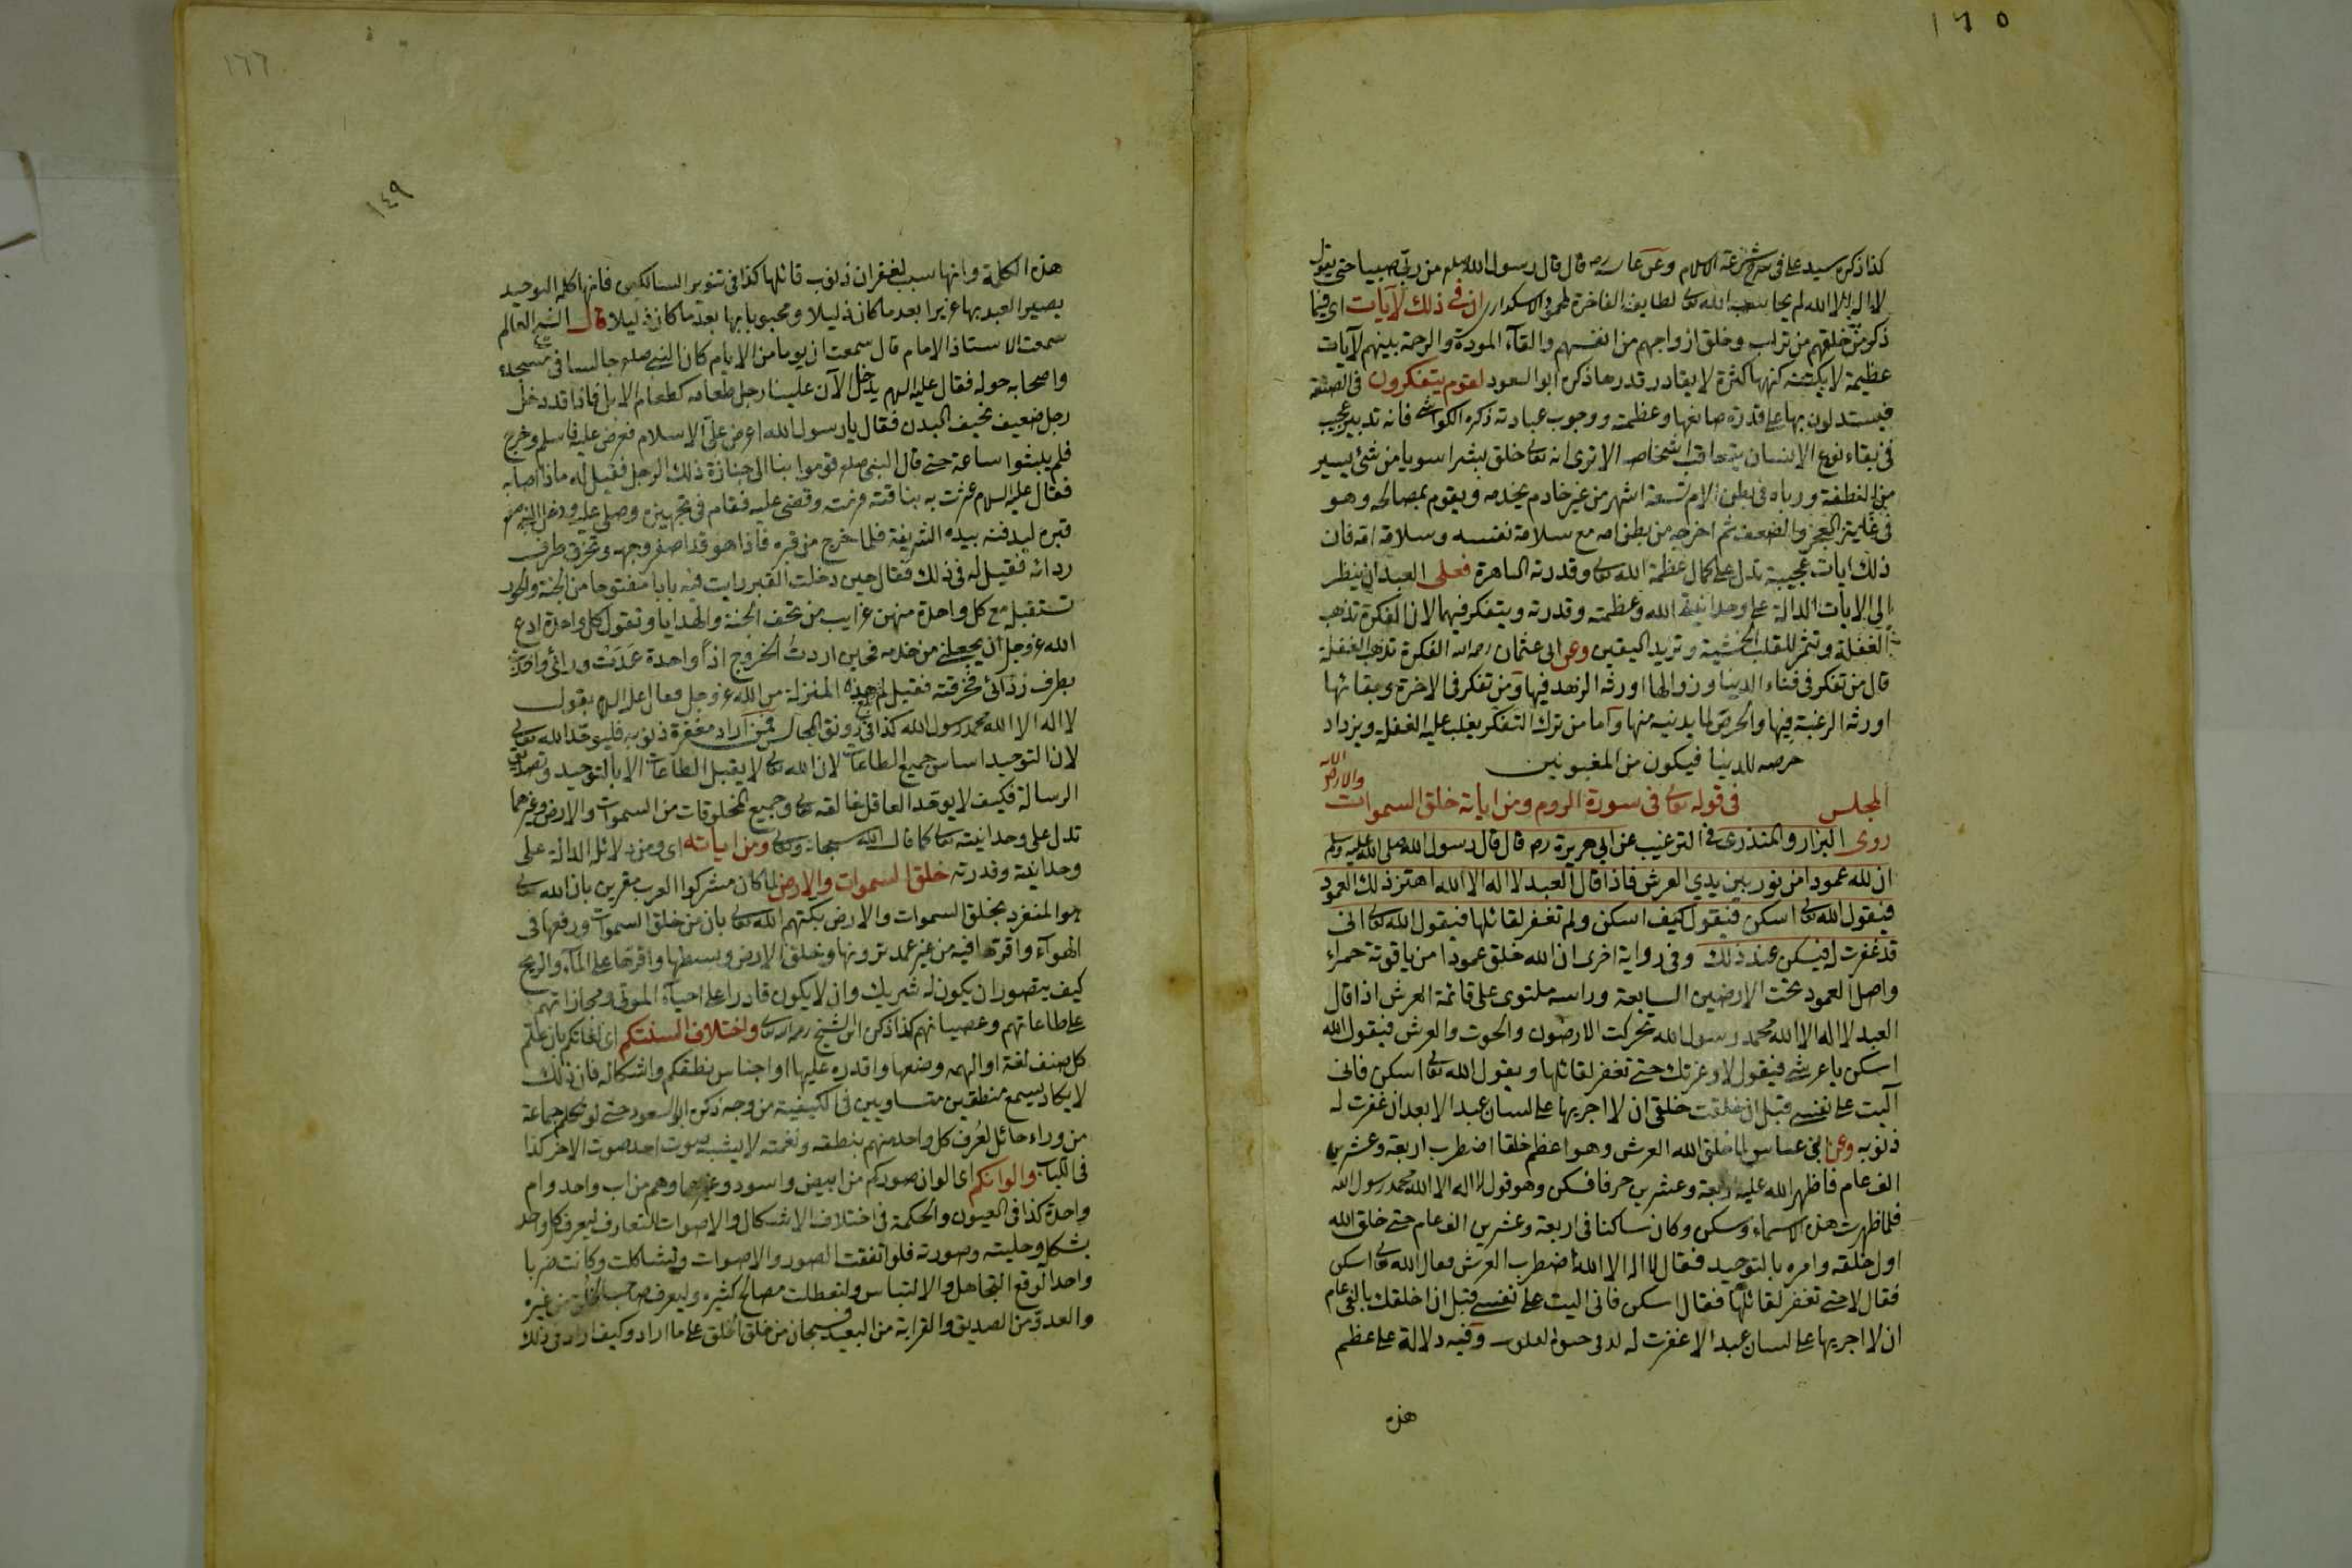 ١٦٥
كذا ذكره سيد على فى شرح شرعة الاسلام وعن عايشة رضه قال قال رسول الله صلعم من ربى صبيا حتى يقول
لا اله الا الله لم يحاسبه الله تعالى لطايف الفاخرة ان فى ذلك لآيات اى فيما
ذكر من خلقهم من تراب وخلق ازواجهم من انفسهم والقآء المودة والرحمة بينهم لآيات
عظيمة لا يكتنه كنهها كثيرة لا يقادر قدرها ذكره ابو السعود لقوم يتفكرون فى الصنعة
فيستدلون بها على قدرة صانعها وعظمته ووجوب عبادته ذكره الكواشى فانه تدبير عجيب
فى بقاء نوع الانسان بتعاقب اشخاص الا ترى انه تعالى خلق بشرا سويا من شئ يسير
من النطفة ورباه فى بطن الام تسعة اشهر من غير خادم يخدمه ويقوم بمصالحه وهو
فى غاية العجز والضعف ثم اخرجه من بطن امه مع سلامة نفسه وسلامة امه فان
ذلك ايات عجيبة تدل على كمال عظمة الله تعالى وقدرته الباهرة فعلى العبد ان ينظر
الى الايات الدالة على وحدانية الله وعظمته وقدرته ويتفكر فيها لان الفكرة تذهب
الغفلة وتثمر للقلب الخشية وتزيد اليقين وعن ابى عثمان رحمه الله الفكرة تذهب الغفلة
قال من تفكر فى فناء الدنيا وزوالها اورثه الزهد فيها ومن تفكر فى الاخرة وبقائها
اورثه الرغبة فيها والحرص لما يدنيه منها واما من ترك التفكر يغلب عليه الغفلة ويزداد
حرصه للدنيا فيكون من المغبونين
المجلس فى قوله تعالى فى سورة الروم ومن اياته خلق السموات
والارض الايه
روى البزار والمنذرى فى الترغيب عن ابى هريرة رضه قال قال رسول الله صلى الله عليه وسلم
ان لله عمودا من نور بين يدي العرش فاذا قال العبد لا اله الا الله اهتز ذلك العمود
فيقول الله تعالى اسكن فيقول كيف اسكن ولم تغفر لقائلها فيقول الله تعالى انى
قد غفرت له فيسكن عند ذلك وفى رواية اخرى ان الله خلق عمودا من ياقوتة حمراء
واصل العمود تحت الارضين السابعة وراسه ملتوى على قائمة العرش اذا قال
العبد لا اله الا الله محمد رسول الله تحركت الارضون والحوت والعرش فيقول الله
اسكن يا عرشى فيقول لا وعزتك حتى تغفر لقائلها ويقول الله تعالى اسكن فانى
آليت على نفسى قبل ان خلقت خلقى ان لا اجريها على لسان عبد الا بعد ان غفرت له
ذنوبه وعن ابن عباس لما خلق الله العرش وهو اعظم خلقا اضطرب اربعة وعشرين
الف عام فاظهر الله عليه اربعة وعشرين حرفا فسكن وهو قول لا اله الا الله محمد رسول الله
فلما ظهرت هذه الاسماء وسكن وكان ساكنا فى اربعة وعشرين الف عام حتى خلق الله
اول خلقه وامره بالتوحيد فقال لا اله الا الله اضطرب العرش فقال الله تعالى اسكن
فقال لا حتى تغفر لقائلها فقال اسكن فانى اليت على نفسى قبل ان اخلقك بالفى عام
ان لا اجريها على لسان عبد الا غفرت له وفيه دلالة على عظم
هذه
١٦٦
١٤٩
هذه الكلمة وانها سبب لغفران ذنوب قائلها كذا فى تنوير السالكين فانها كلمة التوحيد
يصير العبد بها عزيزا بعد ما كان ذليلا ومحبوبا بها بعد ما كان ذليلا قال العالم
سمعت الاستاذ الامام قال سمعت ان يوما من الايام كان النبى صلعم جالسا فى مسجده
واصحابه حوله فقال عليه السلام يدخل الآن علينا رجل طعامه كطعام الابل فاذا قد دخل
رجل ضعيف نحيف البدن فقال يا رسول الله اعرض علىّ الاسلام فعرض عليه فاسلم وخرج
فلم يلبثوا ساعة حتى قال النبى صلعم قوموا بنا الى جنازة ذلك الرجل فقيل له ماذا اصابه
فقال عليه السلام عثرت به بناقته فرمته وقضى عليه فقام فى تجهيزه وصلى عليه ودخل النبى صلعم
قبره ليدفنه بيده الشريفة فلما خرج من قبره فاذا هو قد اصفر وجهه وتخرق طرف
ردائه فقيل له فى ذلك فقال حين دخلت القبر رايت فيه بابا مفتوحا من الجنة والحور
تستقبل مع كل واحدة منهن غرايب من تحف الجنة والهدايا وتقول كل واحدة ادع
الله عز وجل ان يجعلنى من خدمه فحين اردت الخروج اذا واحدة عدت ورائى واخذت
بطرف ردائى فخرقته فقيل لم هذه المنزلة من الله عز وجل فقال عليه السلام بقول
لا اله الا الله محمد رسول الله كذا فى رونق المجالس فمن اراد مغفرة ذنوبه فليوحد الله تعالى
لان التوحيد اساس جميع الطاعات لان الله تعالى لا يقبل الطاعات الا بالتوحيد وتصديق
الرسالة فكيف لا يوحد العاقل خالقه تعالى وجميع المخلوقات من السموات والارض وغيرهما
تدل على وحدانيته تعالى كما قال الله سبحانه وتعالى ومن اياته اى ومن دلائله الدالة على
وحدانيته وقدرته خلق السموات والارض لما كان مشركوا العرب مقرين بان الله تعالى
هو المنفرد بخلق السموات والارض بكتهم الله تعالى بان من خلق السموات ورفعها فى
الهوآء واقرتها فيه من غير عمد ترونها وخلق الارض وبسطها واقرها على المآء والريح
كيف يتصور ان يكون له شريك وان لا يكون قادرا على احيآء الموتى ومجازاتهم
على طاعاتهم وعصيانهم كذا ذكره ابن الشيخ رحمه الله تعالى واختلاف السنتكم اى لغاتكم بان علم
كل صنف لغة او الهمه وضعها واقدره عليها او اجناس نطقكم واشكاله فان ذلك
لا يكاد يسمع منطقين متساويين فى الكيفية من وجه ذكره ابو السعود حتى لو تكلم جماعة
من وراء حائل لعرف كل واحد منهم بنطقه ونغمته لا يشبه صوت احد صوت الاخر كذا
فى اللباب والوانكم اى الوان صوركم من ابيض واسود وغيرهما وهم من اب واحد وام
واحدة كذا فى العيون والحكمة فى اختلاف الاشكال والاصوات للتعارف ليعرف كل واحد
بشكله وحليته وصورته فلو اتفقت الصور والاصوات وتشاكلت وكانت ضربا
واحدا لوقع التجاهل والالتباس ولتعطلت مصالح كثيرة وليعرف صاحب الخلق من غيره
والعدو من الصديق والقرابة من البعيد فسبحان من خلق الخلق على ما اراد وكيف اراد فى ذلك